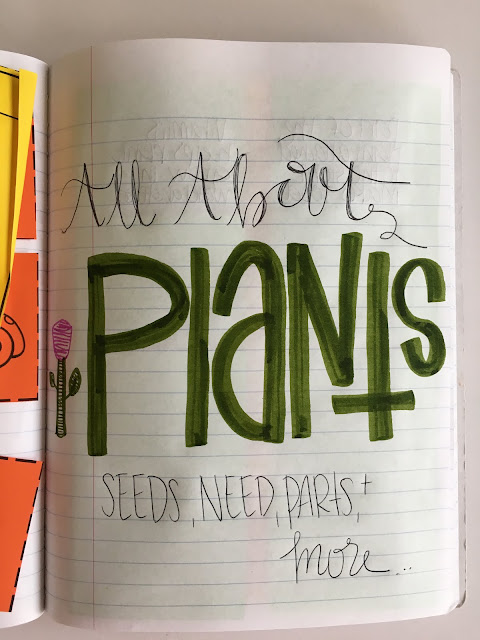 All About
Plants
SEEDS, NEED, PARTS, +
more...